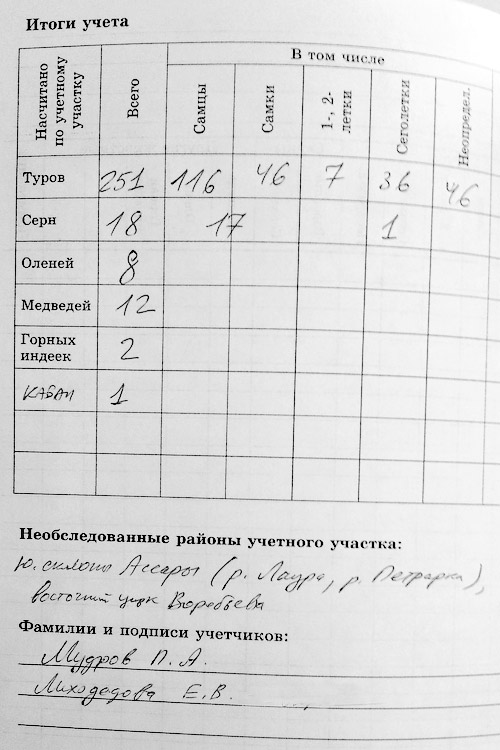 Итоги учета
Насчитано по учетному участку Всего В том числе
Самцы Самки 1-, 2-летки Сеголетки Неопредел.
Туров 251 116 46 7 36 46
Серн 18 17 1
Оленей 8
Медведей 12
Горных индеек 2
КАБАН 1
Необследованные районы учетного участка:
Ю. склоны Ассары (р. Лаура, р. Петрарка),
восточный цирк Воробьева
Фамилии и подписи учетчиков:
Мудров П. А.
Лиходедова Е. В.